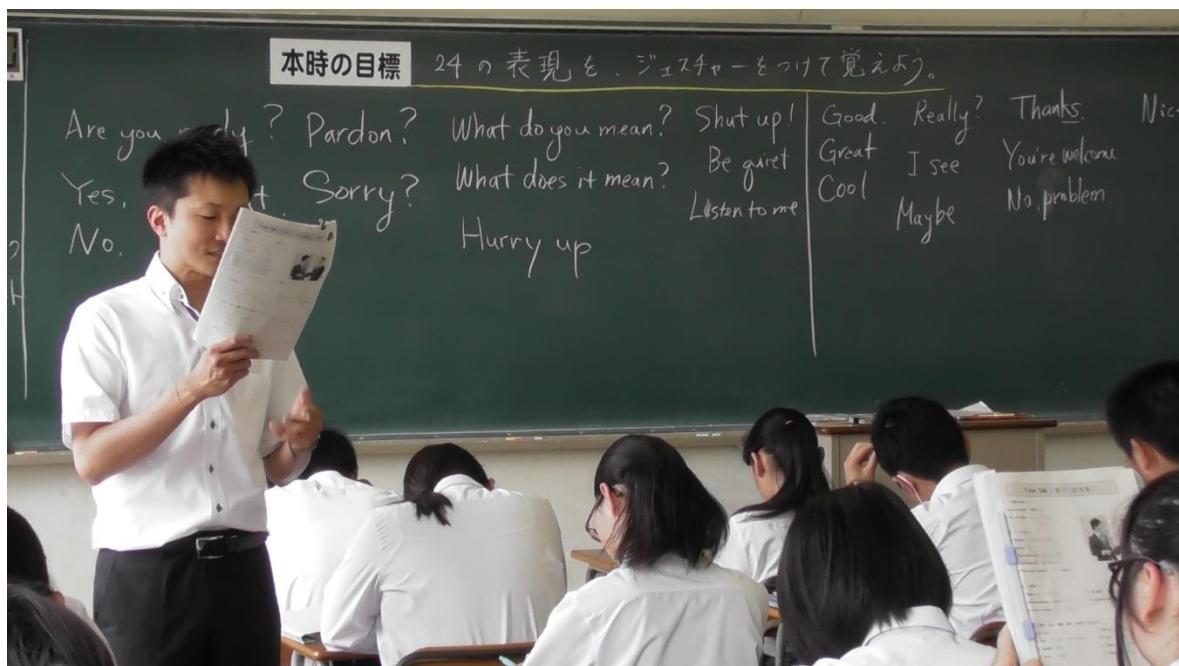 本時の目標 24の表現を、ジェスチャーをつけて覚えよう。
Are you ? Pardon?
Yes, Sorry?
No,
What do you mean?
What does it mean?
Hurry up
Shut up!
Be quiet
Listen to me
Good.
Great
Cool
Really?
I see
Maybe
Thanks.
You're welcome
No, problem.